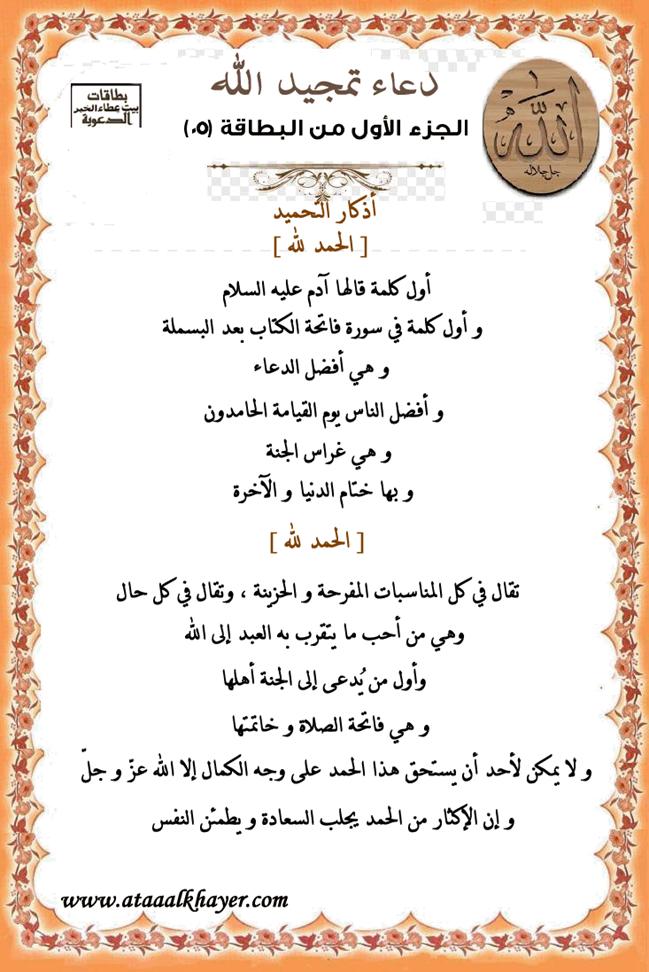 دعاء تمجيد الله
الجزء الأول من البطاقة (٠٥)
بطاقات
بيت عطاء الخير
الدعوية
الله
جل جلاله
أذكار التحميد
[ الحمد لله ]
أول كلمة قالها آدم عليه السلام
و أول كلمة في سورة فاتحة الكتاب بعد البسملة
و هي أفضل الدعاء
و أفضل الناس يوم القيامة الحامدون
و هي غراس الجنة
و بها ختام الدنيا و الآخرة
[ الحمد لله ]
تقال في كل المناسبات المفرحة و الحزينة ، وتقال في كل حال
وهي من أحب ما يتقرب به العبد إلى الله
وأول من يُدعى إلى الجنة أهلها
و هي فاتحة الصلاة و خاتمتها
و لا يمكن لأحد أن يستحق هذا الحمد على وجه الكمال إلا الله عزّ و جلّ
و إن الإكثار من الحمد يجلب السعادة و يطمئن النفس
www.ataaalkhayer.com